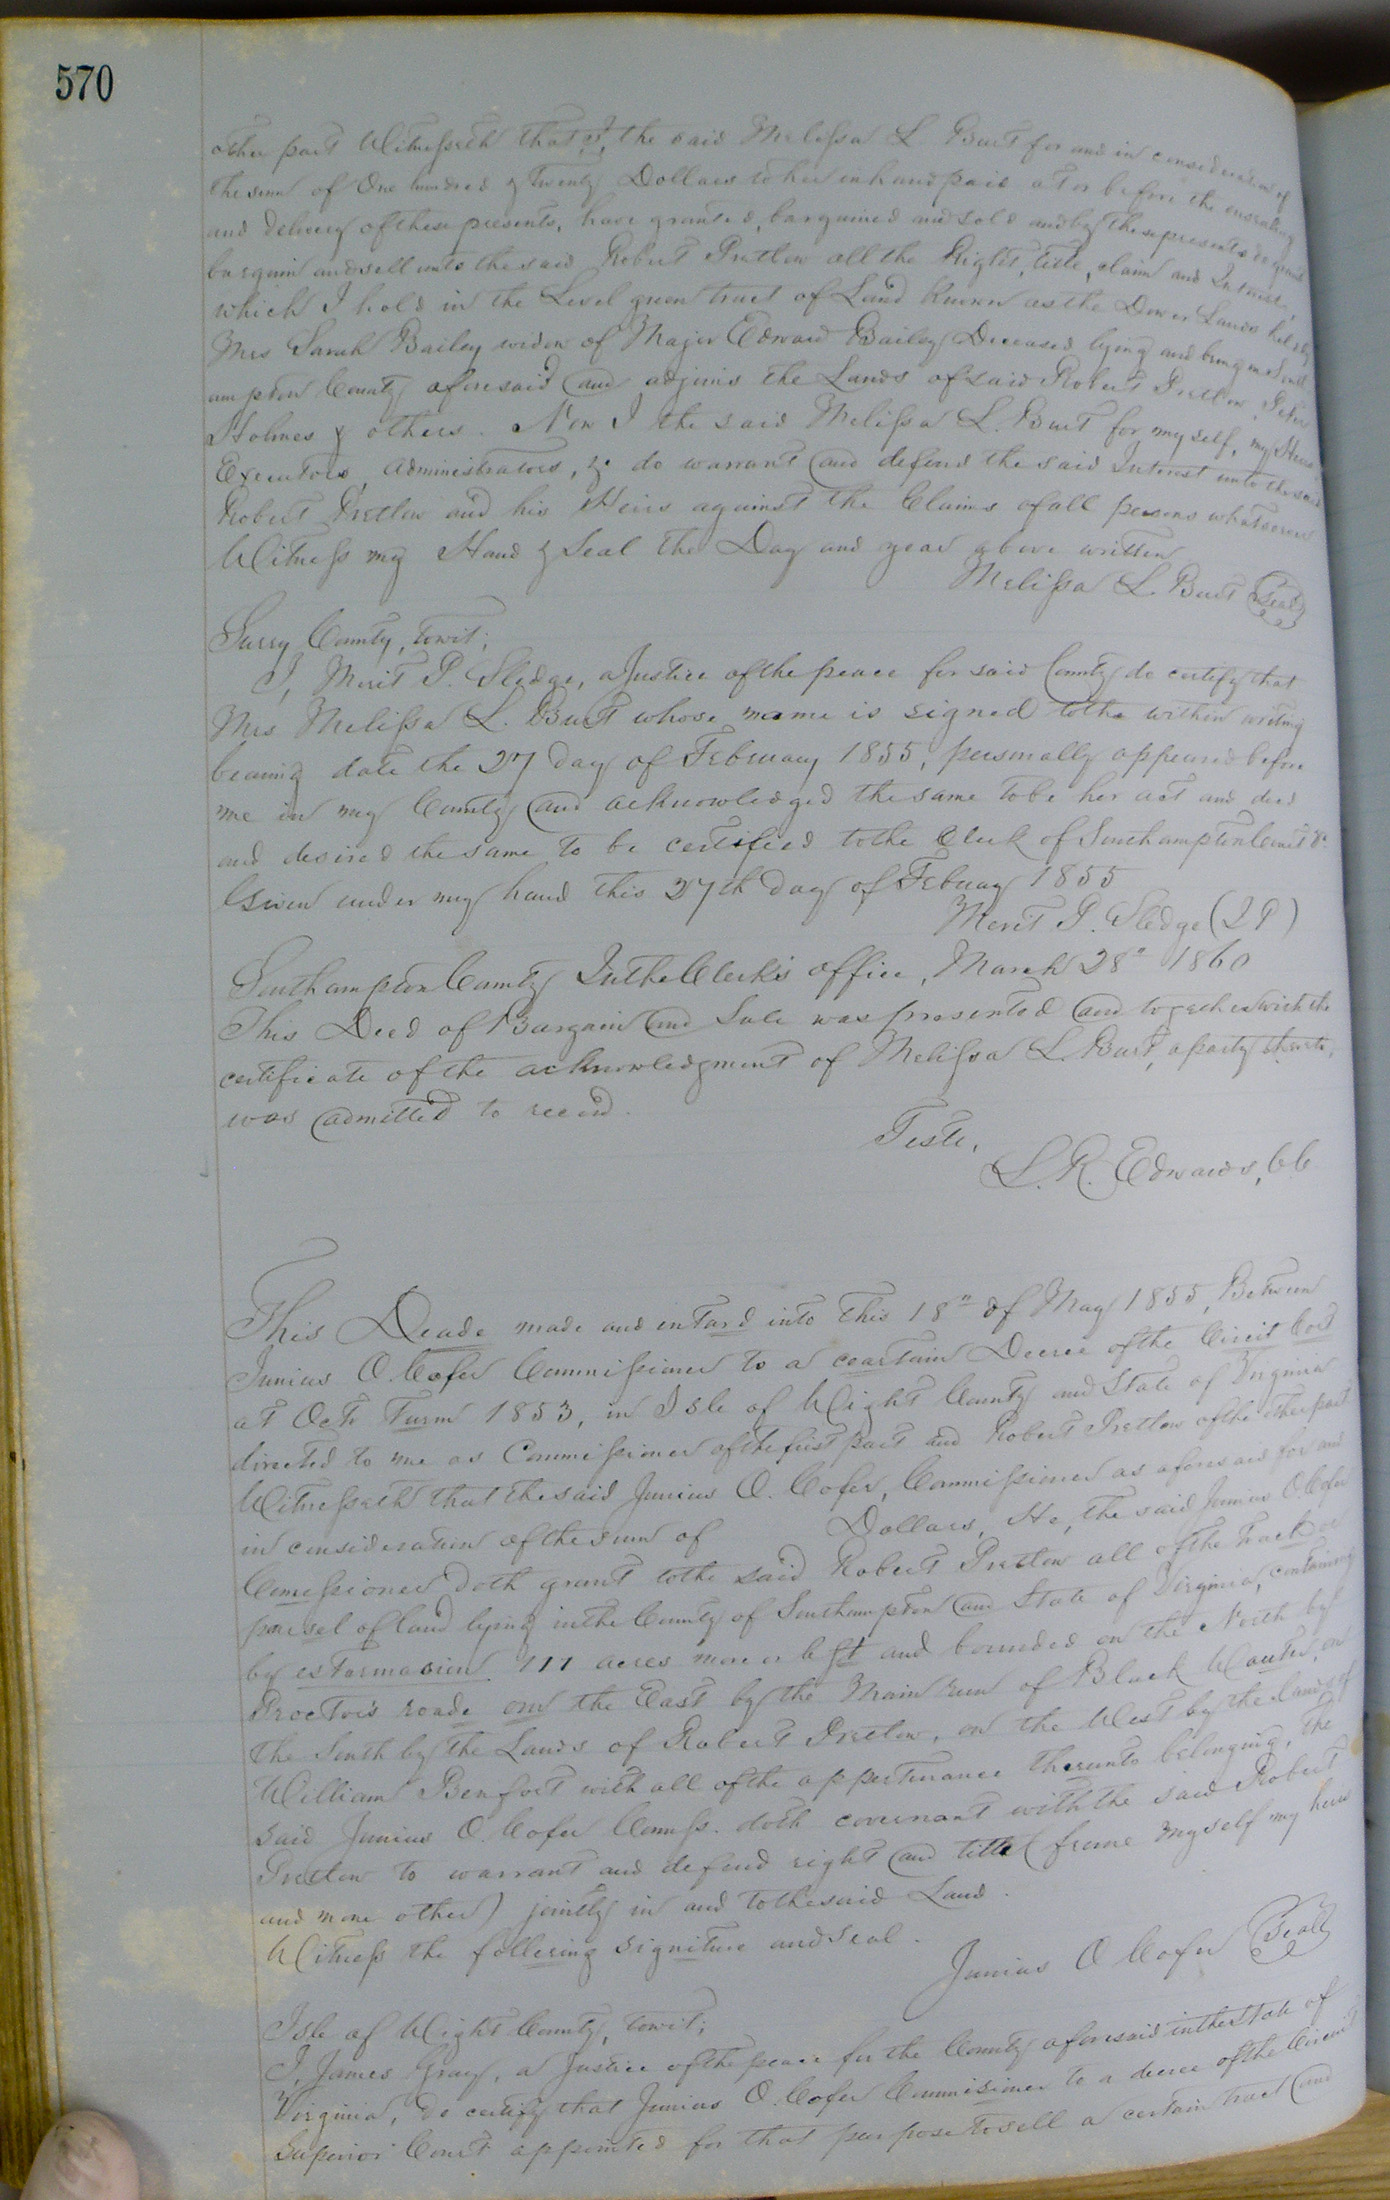 570
other part Witnesseth that I, the said Melissa L. Burt for and in consideration of
the sum of One hundred & Twenty Dollars to her in hand paid at or before the ensealing
and delivery of these presents, have granted, bargained and sold and by these presents do grant
bargain and sell unto the said Robert Pretlow all the Right, title, claim and Interest,
which I hold in the Level green tract of Land known as the Dower Lands held by
Mrs Sarah Bailey widow of Major Edward Bailey Deceased lying and being in South
ampton County aforesaid and adjoins the Lands of said Robert Pretlow, Peter
Holmes & others. Now I the said Melissa L. Burt for myself, my Heirs
Executors, administrators, &c do warrant and defend the said Interest unto the said
Robert Pretlow and his Heirs against the Claims of all persons whatsoever
Witness my Hand & Seal the Day and year above written
Melissa L. Burt Seal
Surry County, towit;
I, Merit P. Sledge, a Justice of the peace for said County do certify that
Mrs Melissa L. Burt whose name is signed to the within writing
bearing date the 27 day of February 1855, personally appeared before
me in my County and acknowledged the same to be her act and deed
and desired the same to be certified to the Clerk of Southampton Court &c.
Given under my hand this 27th day of Febuay 1855
Merit P. Sledge (J P)
Southampton County In the Clerk's office, March 28" 1860
This Deed of Bargain and Sale was presented and together with the
certificate of the acknowledgment of Melissa L. Burt, a party thereto,
was admitted to record.
Teste,
L. R. Edwards, CC
This Deade made and entard into this 18" of May 1855, Between
Junius O. Cofer Commissioner to a ceartain Decree of the Circit Cort
at Octr Turm 1853, in Isle of Wight County and State of Virginia
directed to me as Commissioner of the first part and Robert Pretlow of the other part
Witnesseth that the said Junius O. Cofer, Commissioner as aforesaid for and
in consideration of the sum of Dollars, He, the said Junius O. Cofer
Comessioner doth grant to the said Robert Pretlow all of the track or
parsel of land lying in the County of Southampton and State of Virginia, containing
by estarmacion 111 acres more or lest and bounded on the North by
Proctor's roade om the East by the Main run of Black Wauter, on
the South by the Lands of Robert Pretlow, on the West by the lands of
William Benfort with all of the appertenance thereunto belonging, the
said Junius O. Cofer Commss. doth covernant with the said Robert
Pretlow to warrant and defend right and title (frome myself my heirs
and none other) jointly in and to the said Land.
Witness the follering signiture and seal.
Junius O Cofer Seal
Isle of Wight County, towit;
I, James Gray, a Justice of the peace for the County aforesaid in the State of
Virginia, do certify that Junius O. Cofer Commisioner to a decree of the Circuit
Superior Court appointed for that purpose to sell a certain tract and